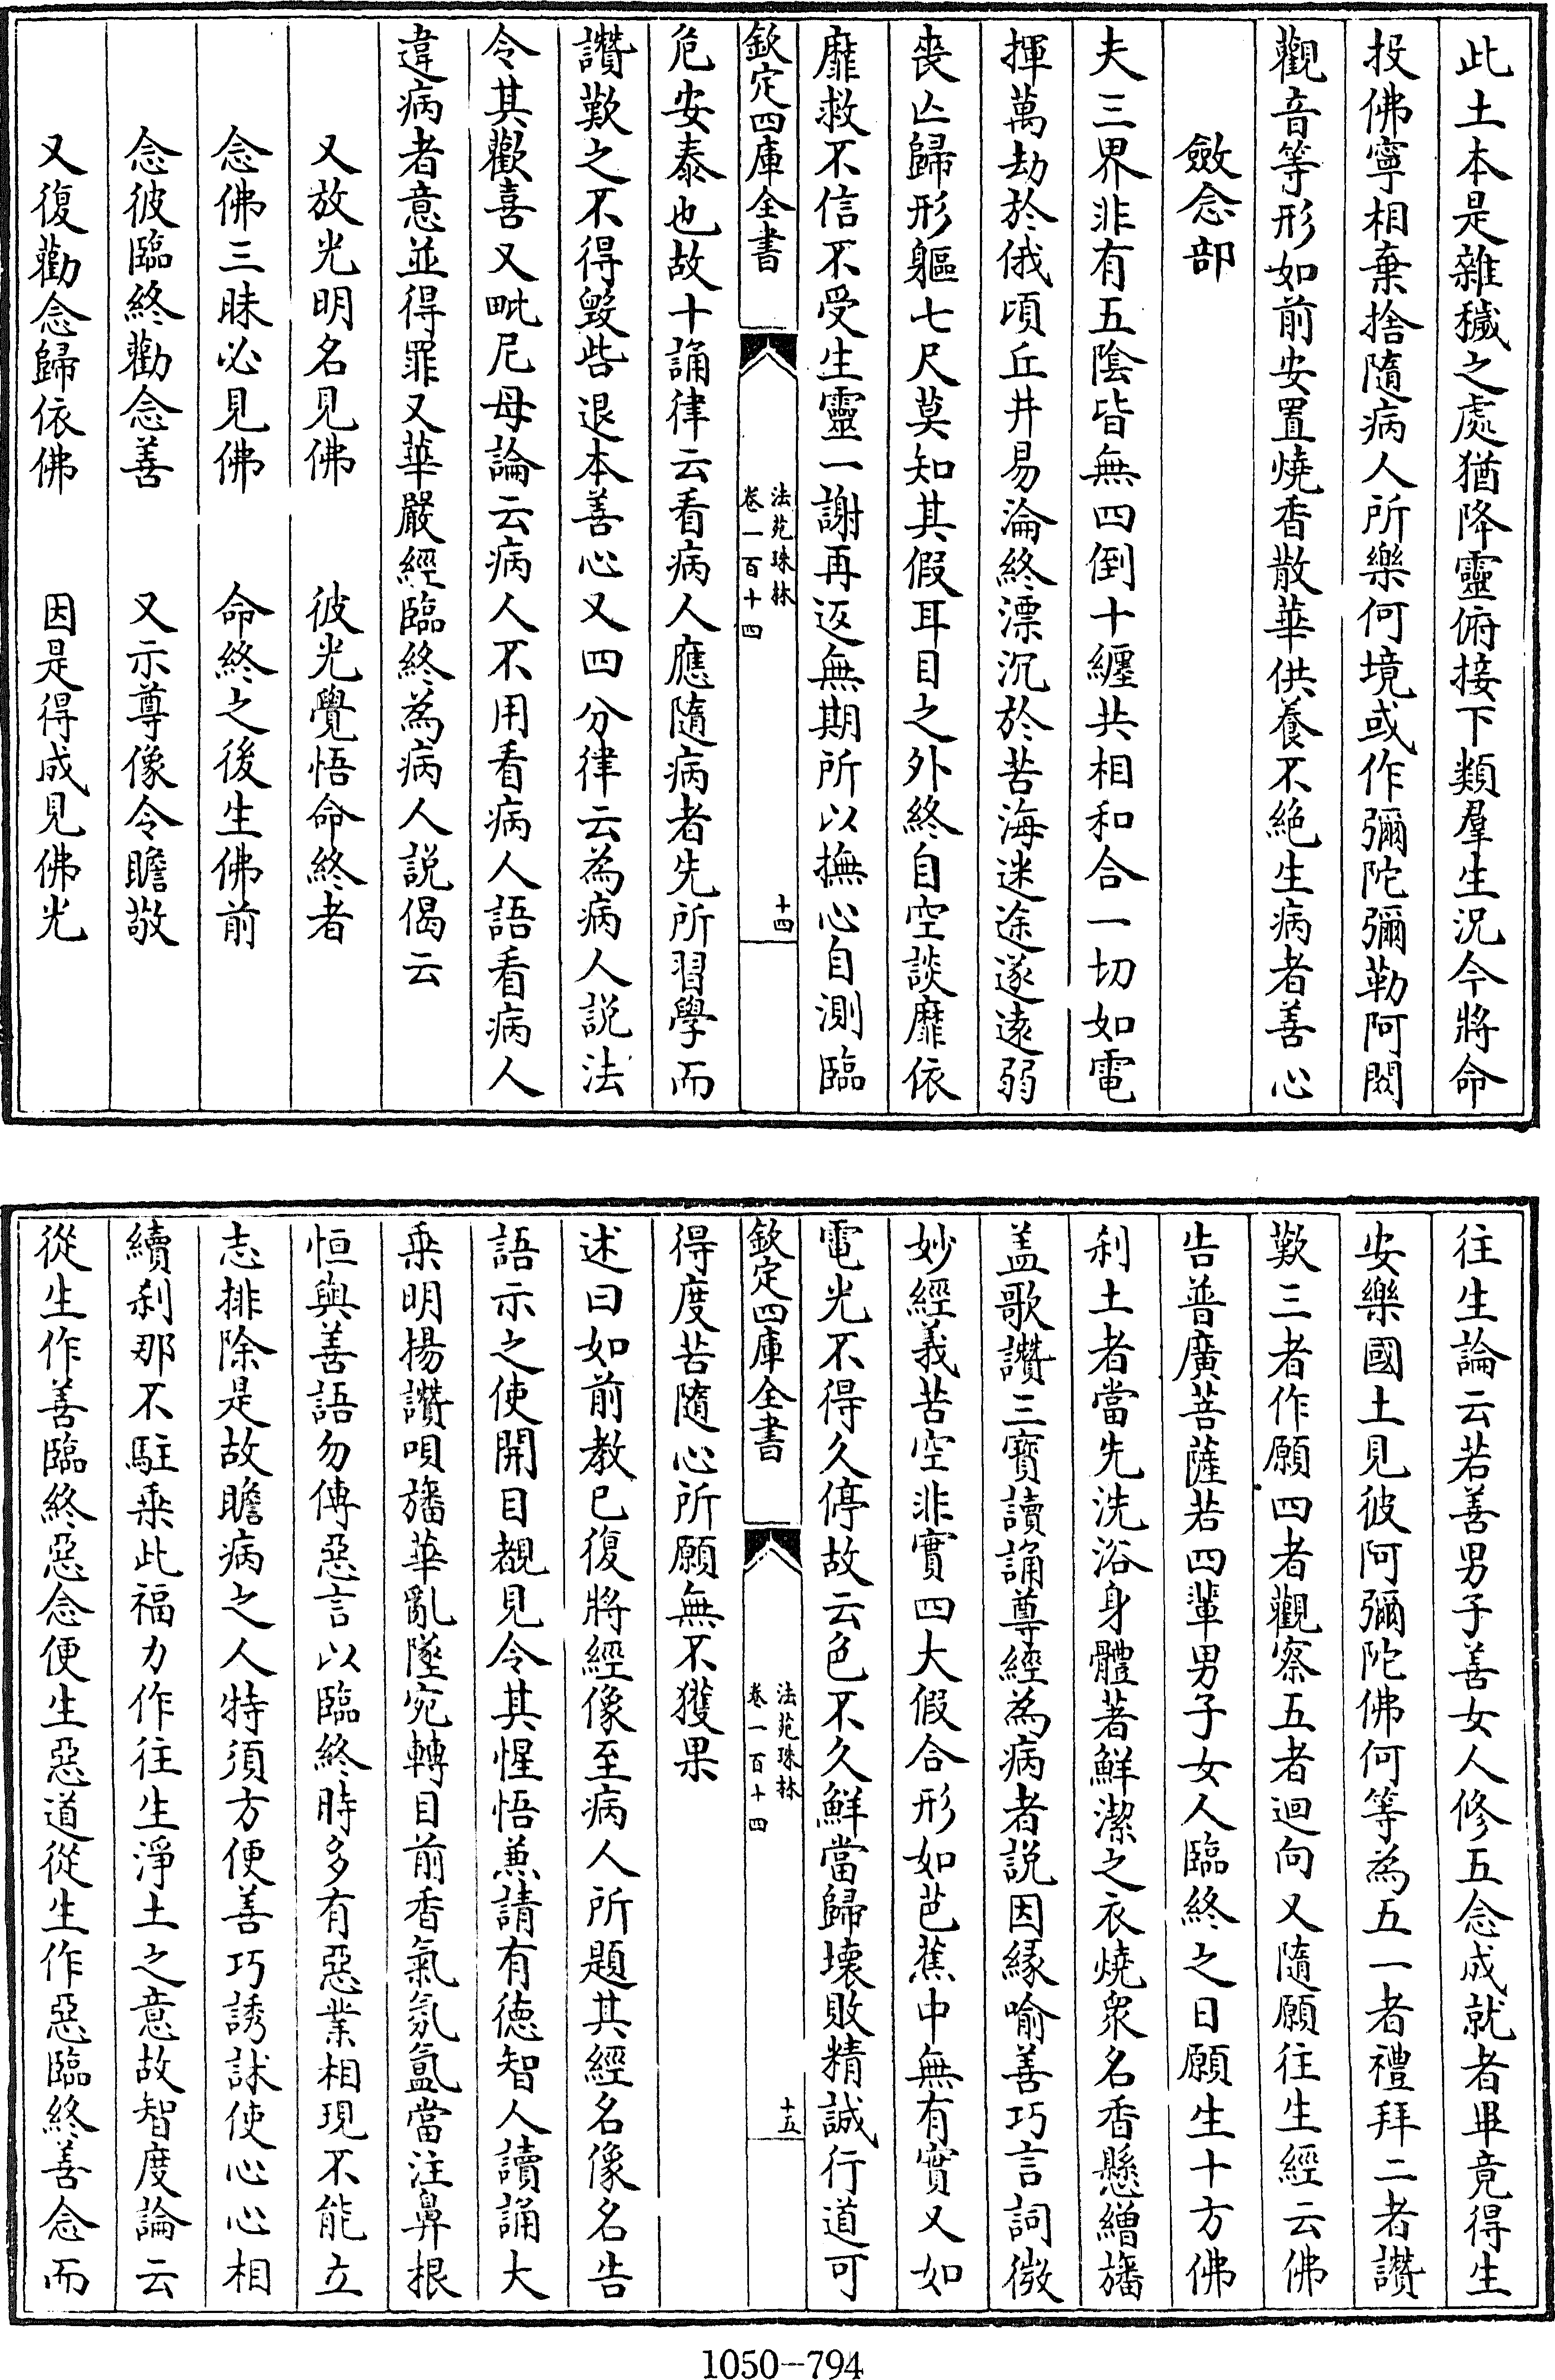 此土本是雜穢之處猶降靈俯接下類羣生況今將命
投佛寧相棄捨隨病人所樂何境或作彌陀彌勒阿閦
觀音等形如前安置燒香散華供養不絕生病者善心
斂念部
夫三界非有五陰皆無四倒十纏共相和合一切如電
揮萬劫於俄頃丘井易淪終漂沉於苦海迷途遂遠弱
喪亾歸形軀七尺莫知其假耳目之外終自空談靡依
靡救不信不受生靈一謝再返無期所以撫心自測臨
欽定四庫全書
法苑珠林
卷一百十四
十四
危安泰也故十誦律云看病人應隨病者先所習學而
讚歎之不得毀呰退本善心又四分律云為病人說法
令其歡喜又毗尼母論云病人不用看病人語看病人
違病者意並得罪又華嚴經臨終為病人說偈云
又放光明名見佛　彼光覺悟命終者
念佛三昧必見佛　命終之後生佛前
念彼臨終勸念善　又示尊像令瞻敬
又復勸念歸依佛　因是得成見佛光
往生論云若善男子善女人修五念成就者畢竟得生
安樂國土見彼阿彌陀佛何等為五一者禮拜二者讚
歎三者作願四者觀察五者迴向又隨願往生經云佛
告普廣菩薩若四輩男子女人臨終之日願生十方佛
刹土者當先洗浴身體著鮮潔之衣燒衆名香懸繒旛
盖歌讚三寶讀誦尊經為病者說因縁喻善巧言詞微
妙經義苦空非實四大假合形如芭蕉中無有實又如
電光不得久停故云色不久鮮當歸壞敗精誠行道可
欽定四庫全書
法苑珠林
卷一百十四
十五
得度苦隨心所願無不獲果
述曰如前教已復將經像至病人所題其經名像名告
語示之使開目覩見令其惺悟兼請有德智人讀誦大
乗明揚讚唄旛華亂墜宛轉目前香氣氛氳當注鼻根
恒與善語勿傳惡言以臨終時多有惡業相現不能立
志排除是故瞻病之人特須方便善巧誘訹使心心相
續刹那不駐乗此福力作往生淨土之意故智度論云
從生作善臨終惡念便生惡道從生作惡臨終善念而
1050-794